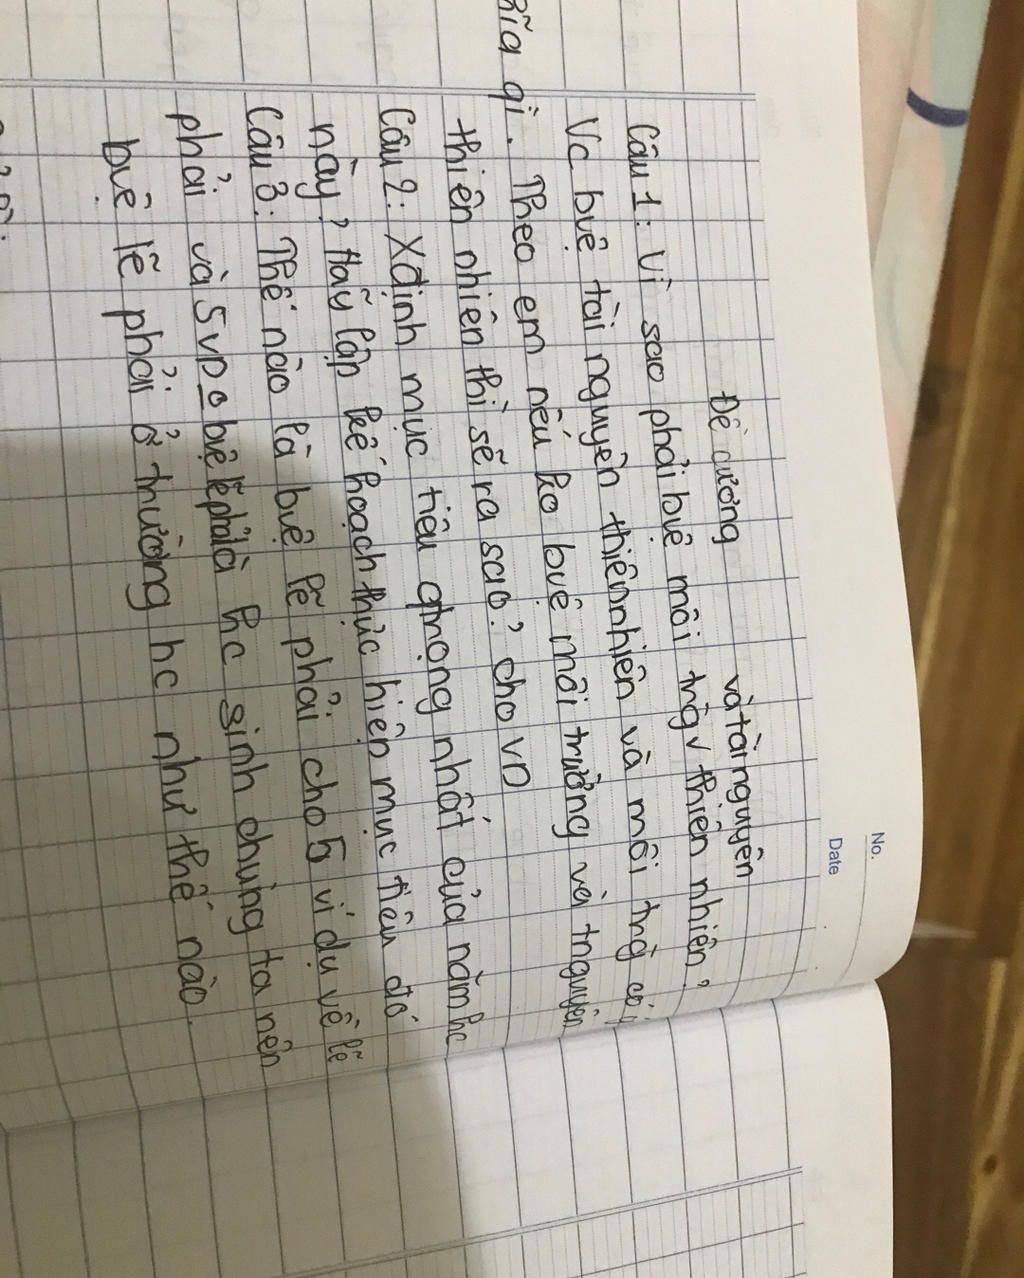 No.
Date
Đề cương
và tài nguyên
Câu 1: Vì sao phải buệ môi trg v thiên nhiên?
Vc buệ tài nguyên thiên nhiên và môi trg có ý
nghĩa gì. Theo em nếu ko buệ môi trường và tnguyên
thiên nhiên thì sẽ ra sao? cho vD
Câu 2: Xđịnh mục tiêu qtrọng nhất của năm hc
này? Hãy lập kế hoạch thực hiện mục tiêu đó
Câu 3: Thế nào là buệ lẽ phải cho 5 ví dụ về lẽ
phải và 5vD o buệ lẽ phải là hc sinh chúng ta nên
buệ lẽ phải ở trường hc như thế nào.